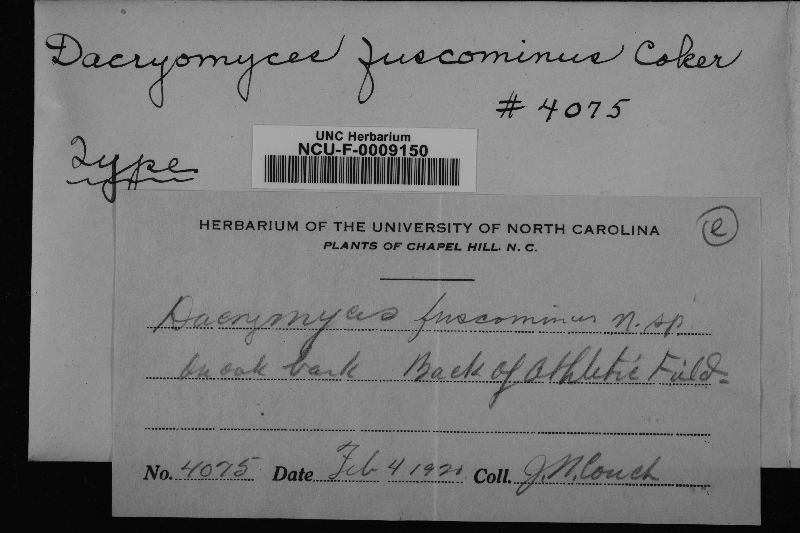 Dacryomyces fuscominus Coker
# 4075
Type
UNC Herbarium
NCU-F-0009150
HERBARIUM OF THE UNIVERSITY OF NORTH CAROLINA
e
PLANTS OF CHAPEL HILL. N. C.
Dacrymyces fuscominus n. sp.
On oak bark Back of Athletic Field-
No. 4075 Date Feb 4 1920 Coll. J.N. Couch